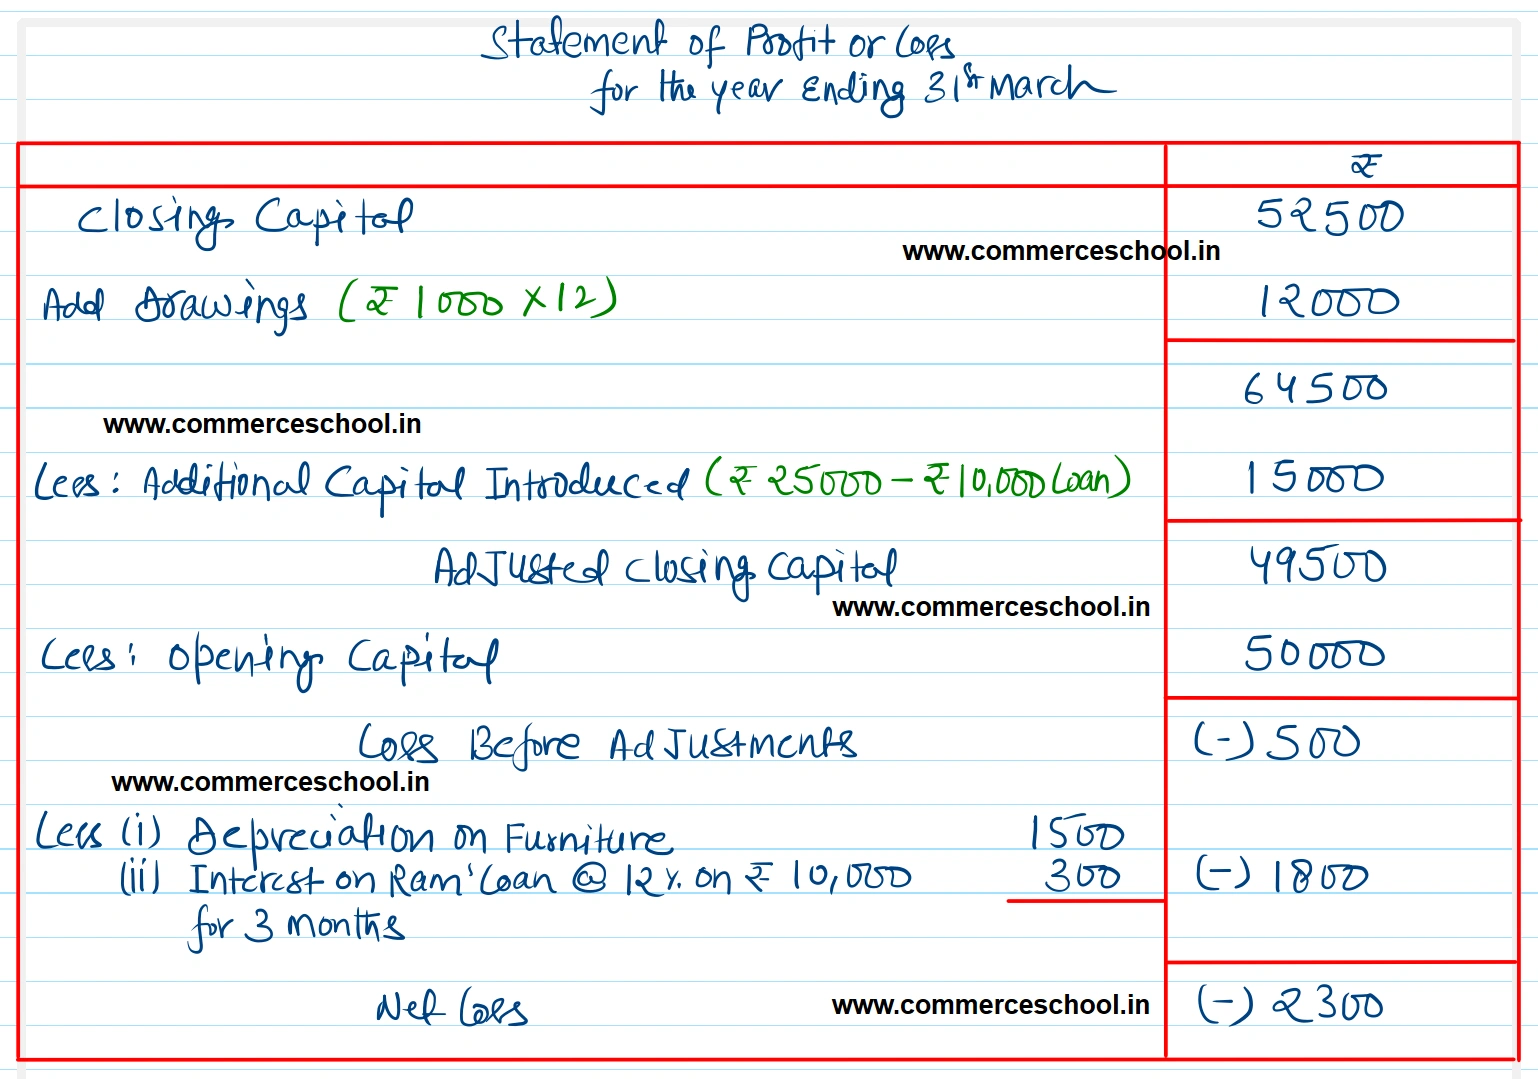 Statement of Profit or Loss
for the year Ending 31st March
₹
Closing Capital 52500
www.commerceschool.in
Add Drawings (₹ 1000 × 12) 12000
64500
www.commerceschool.in
Less: Additional Capital Introduced (₹ 25000 - ₹ 10,000 Loan) 15000
Adjusted Closing Capital 49500
www.commerceschool.in
Less: Opening Capital 50000
Loss Before Adjustments (-) 500
www.commerceschool.in
Less (i) Depreciation on Furniture 1500
(ii) Interest on Ram' Loan @ 12 %. on ₹ 10,000 300 (-) 1800
for 3 months
Net Loss www.commerceschool.in (-) 2300